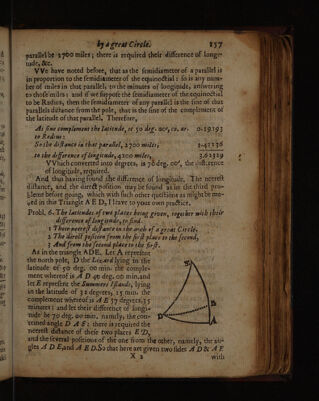 by a great Circle. 157
parallel be 2700 miles; there is required their difference of longi-
tude, &c.
VVe have noted before, that as the semidiameter of a parallel is
in proportion to the semidiameter of the equinoctial: so is any num-
ber of miles in that parallel, to the minutes of longitude, answering
to those miles: and if we suppose the semidiameter of the equinoctial
to be Radius, then the semidiameter of any parallel is the sine of that
parallels distance from the pole, that is the sine of the complement of
the latitude of that parallel. Therefore,
As sine complement the latitude, 50 deg. 00', co. ar. 0.19193
to Radius:
So the distance in that parallel, 2700 miles, 3.43136
to the difference of longitude, 4200 miles, 3.62329
VVhich converted into degrees, is 70 deg. 00', the difference
of longitude, required.
And thus having found the difference of longitude, The nearest
distance, and the direct position may be found as in the third pro-
bleme before going, which with such other questions as might be mo-
ved in this Triangle A E D, I leave to your own practice.
Probl. 6. The latitudes of two places being given, together with their
difference of longitude, to find.
1 Their neerest distance in the arch of a great Circle.
2 The direct position from the first place to the second,
3 And from the second place to the first.
As in the triangle ADE. Let A represent
the north pole, D the Lizard lying in the
latitude of 50 deg. 00 min. the comple-
ment whereof is A D 40 deg. 00 min. and
let E represent the Summers Islands, lying
in the latitude of 32 degrees, 25 min. the
complement whereof is A E 57 degrees, 35
minutes: and let their difference of longi-
tude be 70 deg. 00 min. namely, the con-
tained angle D A E: there is required the
neerest distance of these two places E D,
and the several positions of the one from the other, namely, the an-
gles A D E, and A E D. So that here are given two sides A D & A E
X 2 with
E
B
D
A